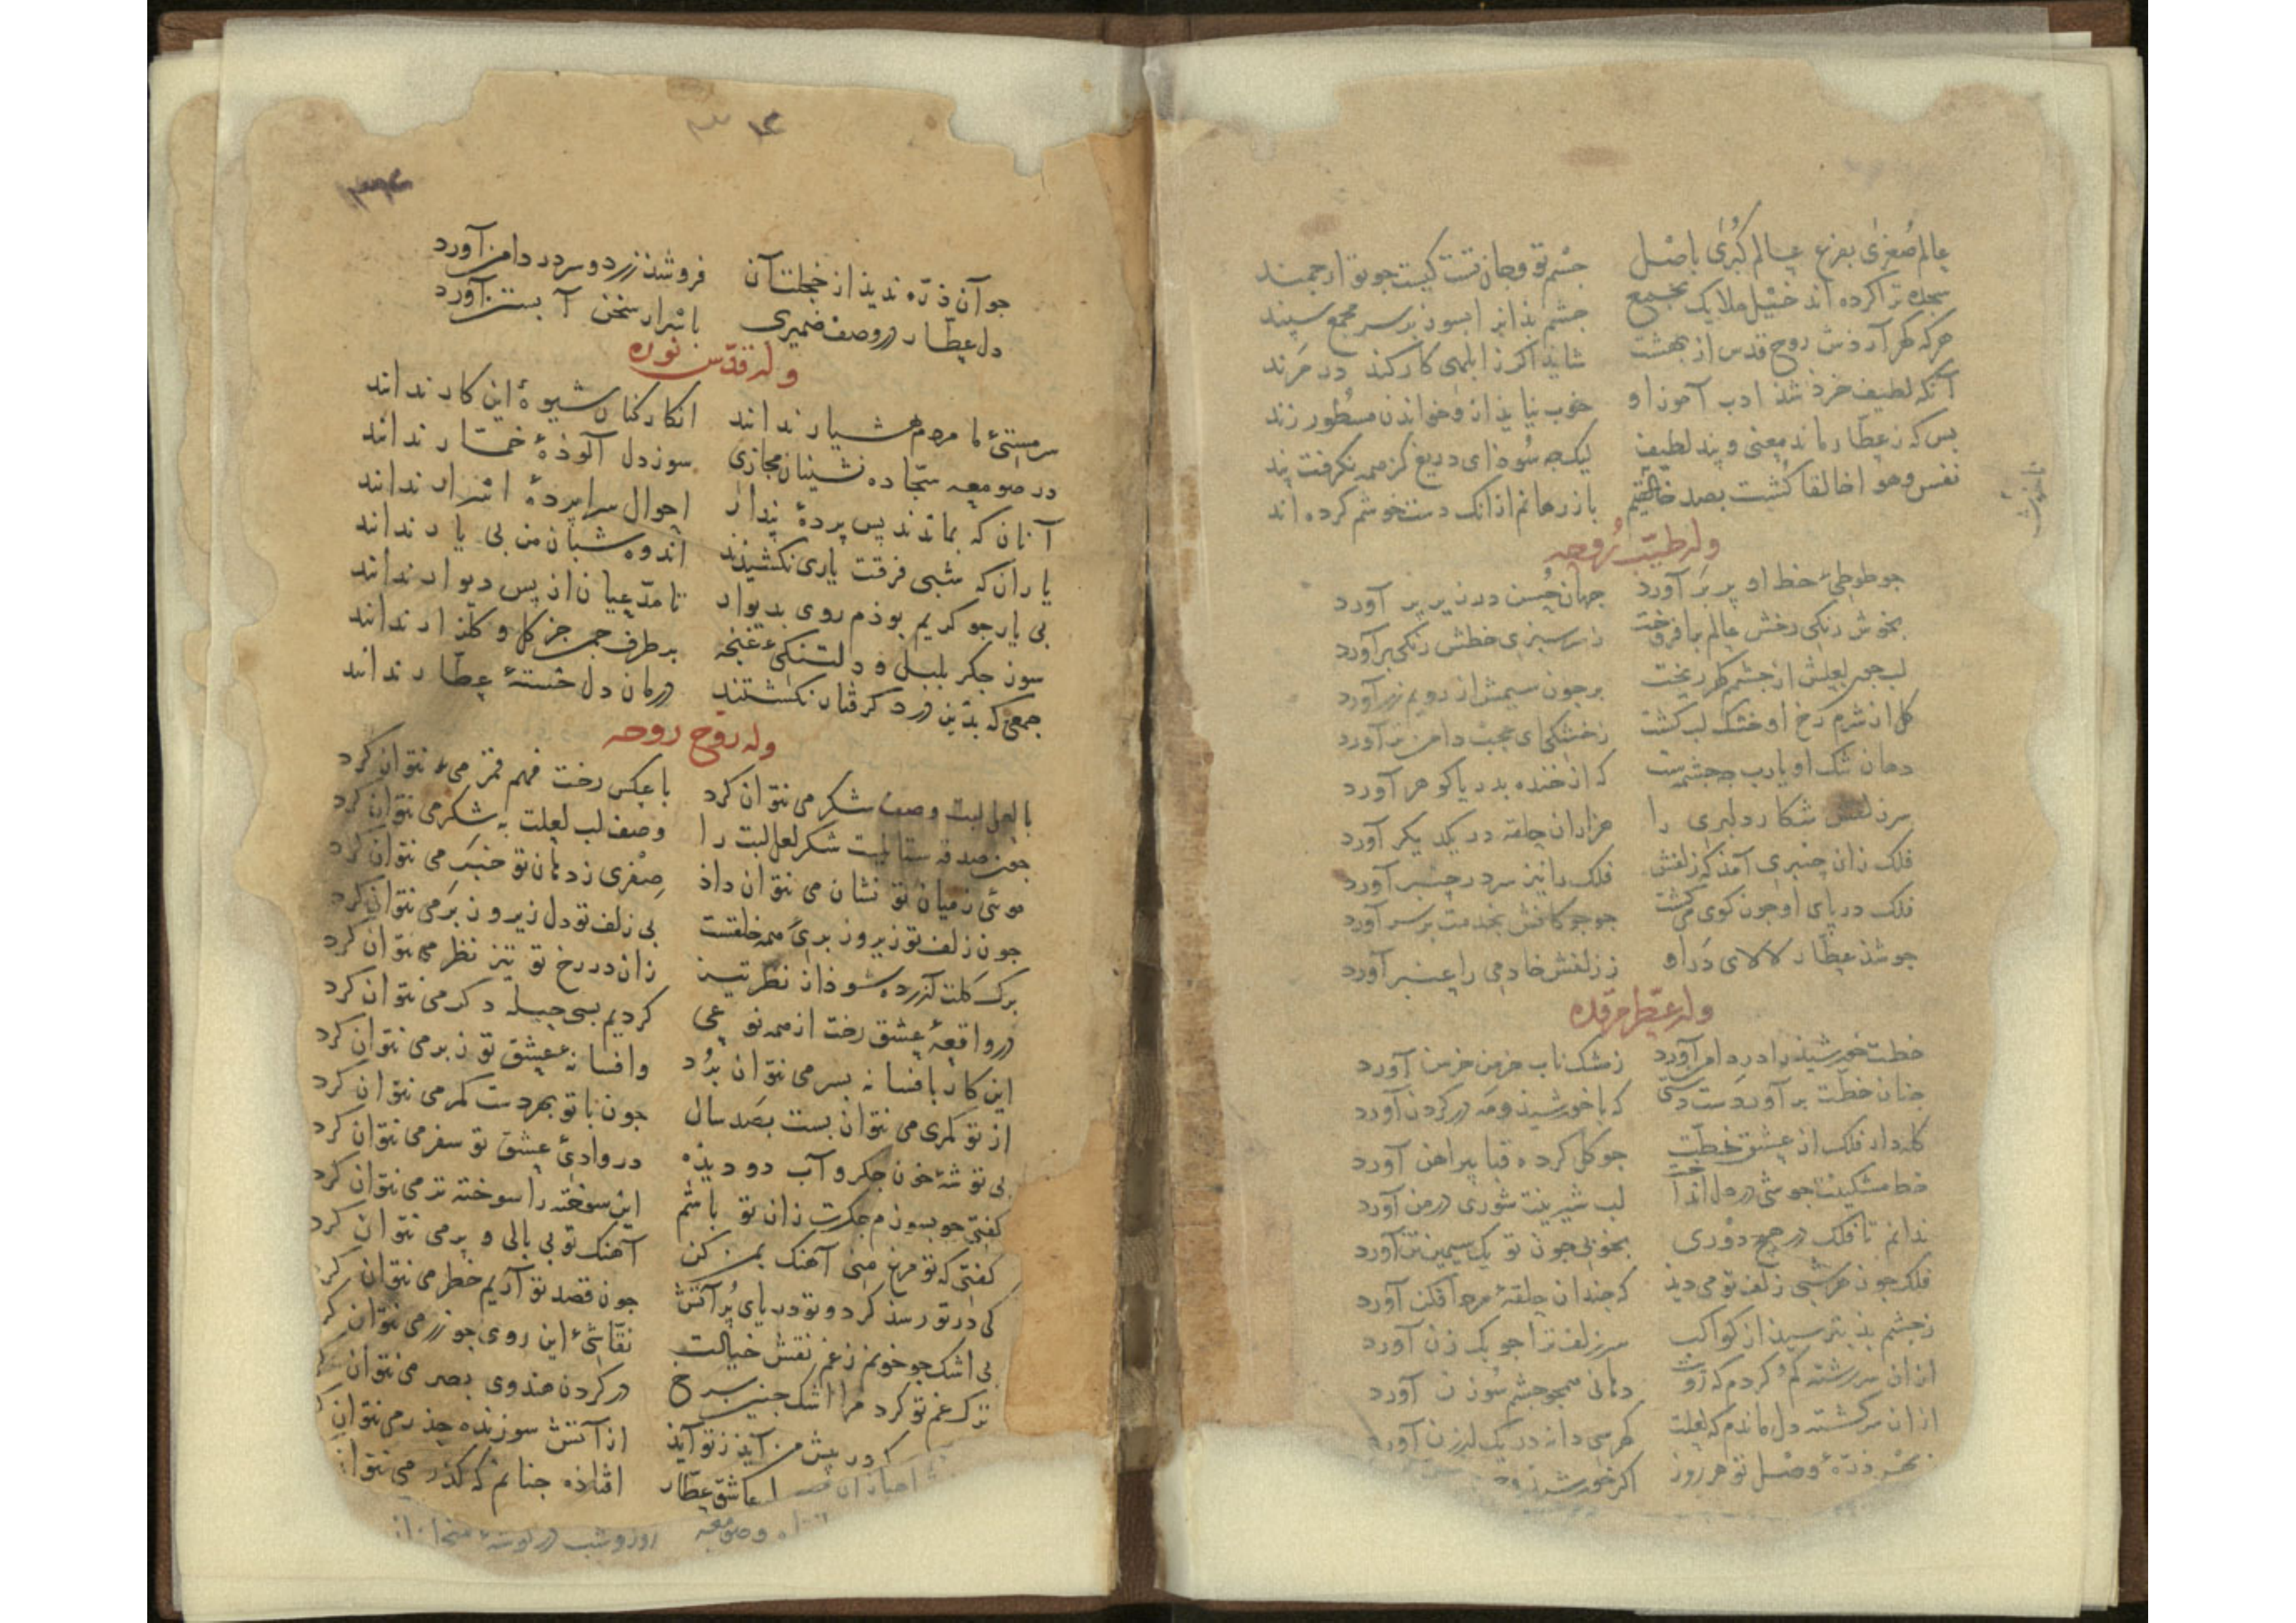 عالم صُغری بفرع عالم کُبری باصل جسم تو و جان تست کیست جو تو ارجمند
سجده ترا کرده اند خیل ملایک بجمع جشم بذ انرا بسوز بر سر مجمع سپند
هرکه طرآرذش روح قدس از بهشت شایذ اکر ز ابلهی کار کند در مرند
آنکه لطیف خرذ شذ ادب آموز او خوب نیایذ ازو خواندن مسطور زند
بس که ز عطار ماند معنی و پند لطیف لیک جه سوذ ای دریغ کز همه نکرفت پند
نفس و هوا خالقا کشت بصد باز رهانم از انک دست خوشم کرده اند
وله طیّب رُوحه
جو طوطیٔ خط او پر بَر آورد جهان حُسن در زیر پر آورد
بخوش رنکی رخش عالم برافروخت ز سرسبزی خطش رنکی برآورد
لب جو لعلش از جشمم کهر ریخت بر جون سیمش از رویم زر آورد
کل از شرم رخ او خشک لب کشت ز خشکی ای عجب دامن تر آورد
دهان تنک او یارب جه جشمه ست که از خنده بدریا کوهر آورد
سر زلفش شکار دلبری را هزاران حلقه در یکدیکر آورد
فلک زان جنبری آمذ که زلفش فلک را نیز سر در جنبر آورد
فلک در پای او جون کوی می کشت جو جوکانش بخدمت بر سر آورد
جو شذ عطّار لالای دَر او ز زلفش خادمی را عنبر آورد
وله عطّر مرقده
خطت خورشیذ را در دامن آورد ز مشک ناب خرمن خرمن آورد
جنان خطت بر آورد دست دستی که با خورشیذ و مه در کردن آورد
کله دار فلک از عشق خطت جو کل کرده قبا پیراهن آورد
خط مشکینت جوشی در دل انداخت لب شیرینت شوری در من آورد
ندانم تا فلک در هیچ دوری بخوبی جون تو یک سیمین تن آورد
فلک جون هر شبی زلف تو می دیذ که جندان حلقهٔ مرد افکن آورد
ز جشم بذ بترسیذ از کواکب سر زلف ترا جوبک زن آورد
از ان سررشته کم کردم که رویت دهانی همجو جشم سوزن آورد
از ان سرکشته دل ماندم که لعلت کهر سی دانه در یک ارزن آورد
بهر ذرّهٔ وصل تو هر روز اکر خورشید
جو آن ذرّه ندیذ از خجلت آن فروشذ زرد و سر در دامن آورد
دل عطّار در وصف ضمیری باسرار سخن آبستن آورد
وله قدّس نوره
سر مستیٔ ما مردم هشیار ندانند انکار کنان شیوهٔ این کار ندانند
در صومعه سجّاده نشینان مجازی سوز دل آلوذهٔ خمّار ندانند
آنان که بماندند پس پردهٔ پندار احوال سراپردهٔ اسرار ندانند
یاران که شبی فرقت یاری نکشیذند اندوه شبان من بی یار ندانند
بی یار جو کریم بوذم روی بدیوار تا مدّعیان از پس دیوار ندانند
سوز جکر بلبل و دلتنکیٔ غنجه بر طرف جمن جز کل و کلزار ندانند
جمعی که بدین درد کرفتار نکشتند درمان دل خستهٔ عطّار ندانند
وله روّح روحه
با لعل لبت وصف شکر می نتوان کرد با عکس رخت فهم قمر می نتوان کرد
جون صدقه ستانیست شکر لعل لبت را وصف لب لعلت به شکر می نتوان کرد
موئی ز میان تو نشان می نتوان داذ صفری ز دهان تو خبر می نتوان کرد
جون زلف تو زیر و زبریٔ همه خلقست بی زلف تو دل زیر و زبر می نتوان کرد
برک کلت آزرده شوذ از نظر تیز زان در رخ تو تیز نظر می نتوان کرد
در واقعهٔ عشق رخت از همه نوعی کردیم بسی حیله دکر می نتوان کرد
این کار بافسانه بسر می نتوان بُرد و افسانهٔ عشق تو ز بر می نتوان کرد
از تو کمری می نتوان بست بصد سال جون با تو بهر دست کمر می نتوان کرد
بی توشهٔ خون جکر و آب دو دیذه در وادیٔ عشق تو سفر می نتوان کرد
کفتی جو بسوزم جکرت زان تو باشم این سوخته را سوخته تر می نتوان کرد
کفتی که تو مرغ منی آهنک بمن کن آهنک تو بی بالی و پر می نتوان کرد
کی در تو رسذ کرد و تو دریای پُر آتش جون قصد تو آریم خطر می نتوان کر
بی اشک جو خونم ز غم نقش خیالت نقّاشیٔ این روی جو زر می نتوان کر
ترک غم تو کرد مرا اشک جنین سرخ در کردن هندوی بصر می نتوان
در پیش من آیذ ز تو آیذ از آتش سوزنده حذر می نتوان
عاشق عطّار افتاذه جنانم که کذر می نتوا
و صومعه روز و شب در کوشهٔ